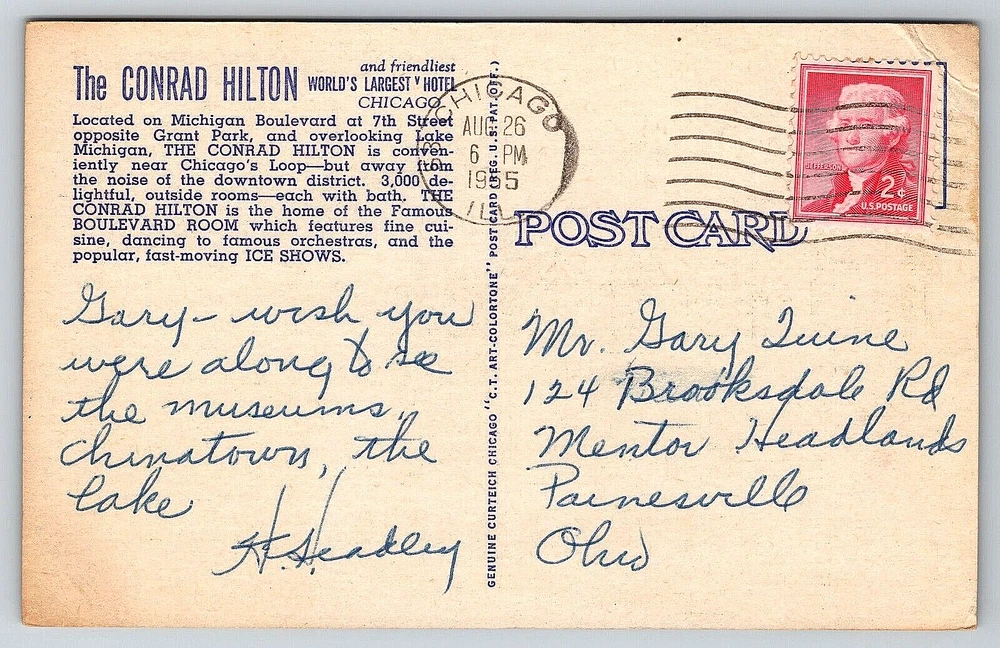 The CONRAD HILTON
and friendliest
WORLD'S LARGEST ˅ HOTEL
CHICAGO
Located on Michigan Boulevard at 7th Street
opposite Grant Park, and overlooking Lake
Michigan, THE CONRAD HILTON is conven-
iently near Chicago's Loop—but away from
the noise of the downtown district. 3,000 de-
lightful, outside rooms—each with bath. THE
CONRAD HILTON is the home of the Famous
BOULEVARD ROOM which features fine cui-
sine, dancing to famous orchestras, and the
popular, fast-moving ICE SHOWS.
Gary – wish you
were along to see
the museums,
Chinatown, the
lake
H. Headley
GENUINE CURTEICH CHICAGO "C.T. ART-COLORTONE" POST CARD (REG. U.S. PAT. OFF.)
CHICAGO
AUG 26
6 PM
1955
ILL
JEFFERSON
2¢
U.S. POSTAGE
POST CARD
Mr. Gary Quine
124 Brooksdale Rd
Mentor Headlands
Painesville
Ohio